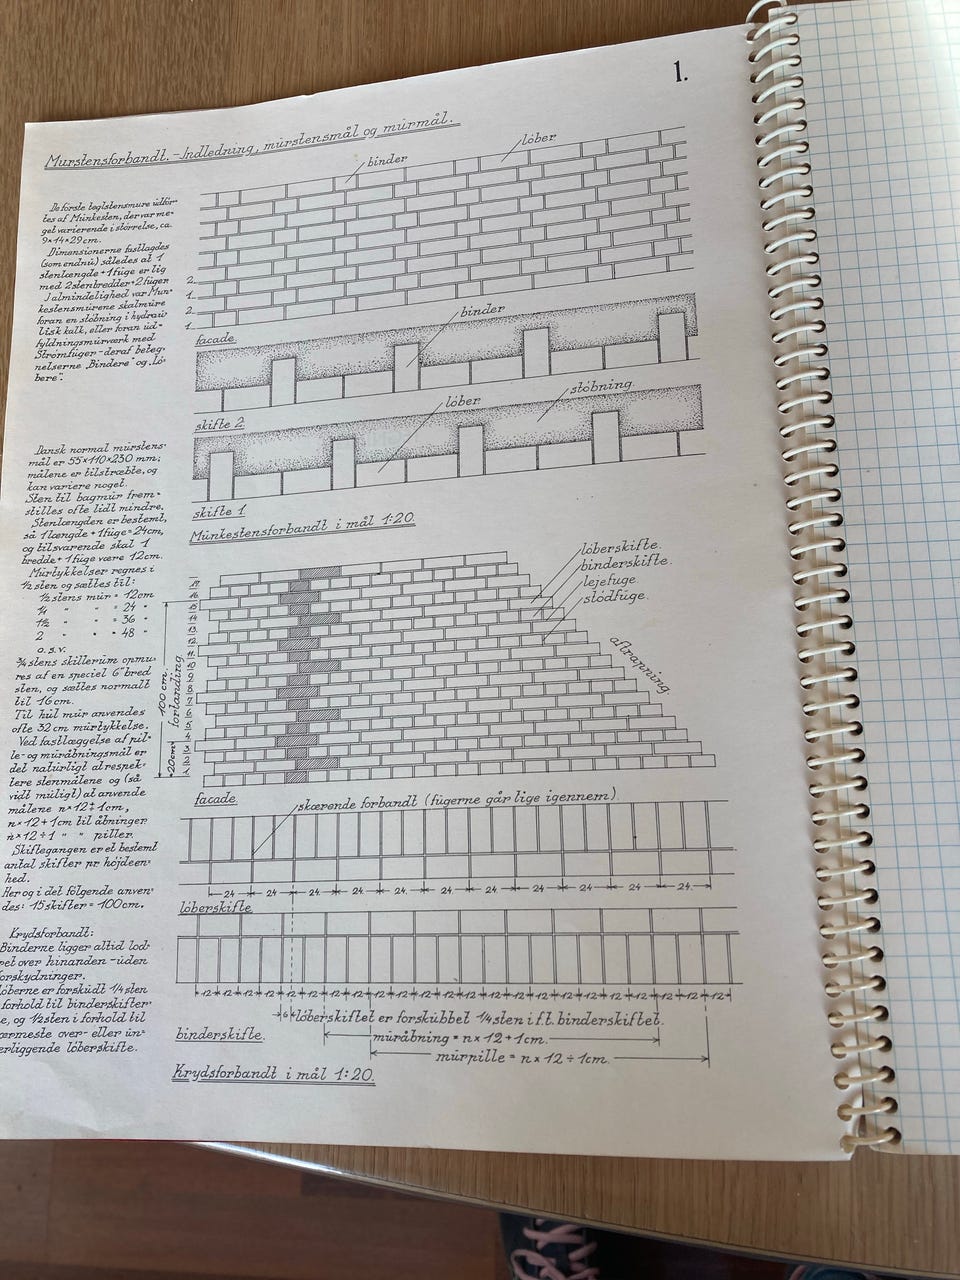 1.
Murstensforbandt.-Indledning, murstensmål og murmål.
De første teglstensmure udför-
tes af Munkesten, der var me-
get varierende i størrelse, ca.
9×14×29cm.
Dimensionerne fastlagdes
(som endnu) således at 1
stenlængde + 1 fuge er lig
med 2 stenbredder + 2 fuger
I almindelighed var Mun-
kestensmurene skalmure
foran en stöbning i hydrau-
lisk kalk, eller foran ud-
fyldningsmurværk med
Strømfuger - deraf beteg-
nelserne „Bindere" og „Lö-
bere".
binder
löber
2
1
2
1
facade
binder
skifte 2
löber
stöbning
skifte 1
Munkestensforbandt i mål 1:20.
Dansk normal murstens-
mål er 55×110×230 mm;
målene er tilstræbte, og
kan variere noget.
Sten til bagmur frem-
stilles ofte lidt mindre.
Stenlængden er bestemt,
så 1 længde + 1 fuge = 24cm,
og tilsvarende skal 1
bredde + 1 fuge være 12cm.
Murtykkelser regnes i
½ sten og sættes til:
½ stens mur = 12cm
¼ " " = 24 "
1½ " " = 36 "
2 " " = 48 "
o.s.v.
¾ stens skillerum opmu-
res af en speciel 6" bred
sten, og sættes normalt
til 16cm.
Til hul mur anvendes
ofte 32cm murtykkelse.
Ved fastlæggelse af pil-
le- og muråbningsmål er
det naturligt at respek-
tere stenmålene og (så
vidt muligt) at anvende
målene n×12÷1cm,
n×12+1cm til åbninger
n×12÷1 " " piller.
Skiftegangen er et bestemt
antal skifter pr højdeen-
hed.
Her og i det følgende anven-
des: 15 skifter = 100cm.
löberskifte.
binderskifte.
lejefuge
stödfuge.
aftrapning
17
16
15
14
13
12
11
10
9
8
7
6
5
4
3
2
1
100 cm.
20cm
fortanding
facade
skærende forbandt (fugerne går lige igennem)
24 24 24 24 24 24 24 24 24 24 24 24
löberskifte
12 12 12 12 12 12 12 12 12 12 12 12 12 12 12 12 12 12 12 12 12 12 12 12 12
6 löberskiftet er forskubbet ¼ sten i f.t. binderskiftet.
binderskifte.
muråbning = n × 12 + 1cm.
murpille = n × 12 ÷ 1cm.
Krydsforbandt i mål 1:20.
Krydsforbandt:
Binderne ligger altid lod-
ret over hinanden - uden
forskydninger.
Löberne er forskudt ¼ sten
i forhold til binderskifter-
ne, og ½ sten i forhold til
nærmeste over- eller un-
derliggende löberskifte.